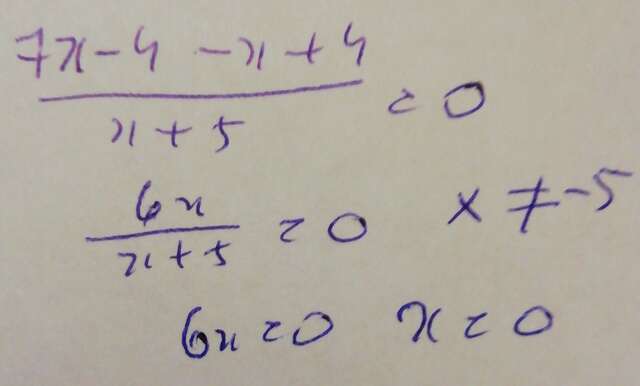 7x-4 -x+4
x+5 = 0
6x
x+5 = 0 x ≠ -5
6x=0 x=0